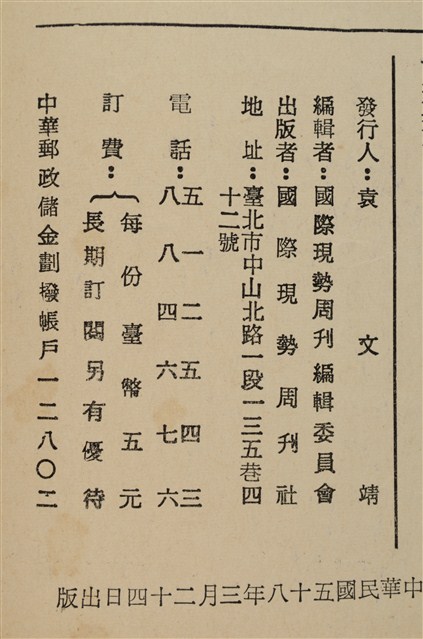 發行人：袁文靖
編輯者：國際現勢周刊編輯委員會
出版者：國際現勢周刊社
地址：臺北市中山北路一段一三五巷四
十二號
電話：五一二五四三
八八四六七六
訂費：每份臺幣五元
長期訂閱另有優待
中華郵政儲金劃撥帳戶一二八〇二
中華民國五十八年三月二十四日出版